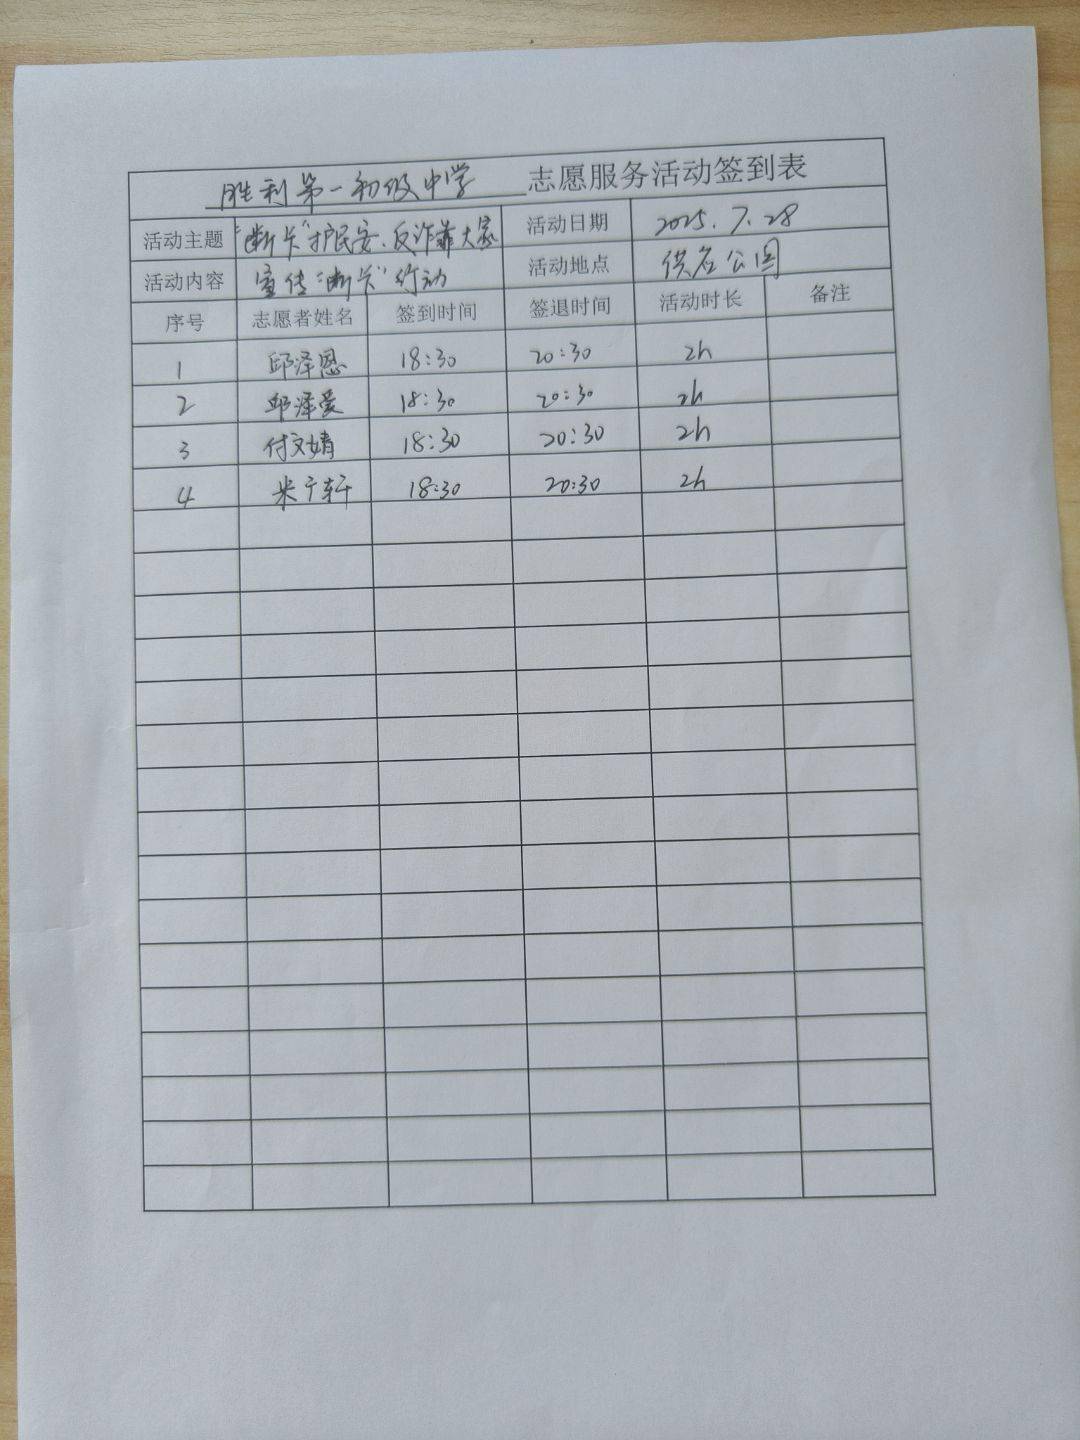 胜利第一初级中学 志愿服务活动签到表
活动主题 "断卡"护民安、反诈靠大家 活动日期 2025.7.28
活动内容 宣传"断卡"行动 活动地点 公园
序号 志愿者姓名 签到时间 签退时间 活动时长 备注
1 邱泽恩 18:30 20:30 2h
2 邱泽爱 18:30 20:30 2h
3 付文婧 18:30 20:30 2h
4 米宁轩 18:30 20:30 2h